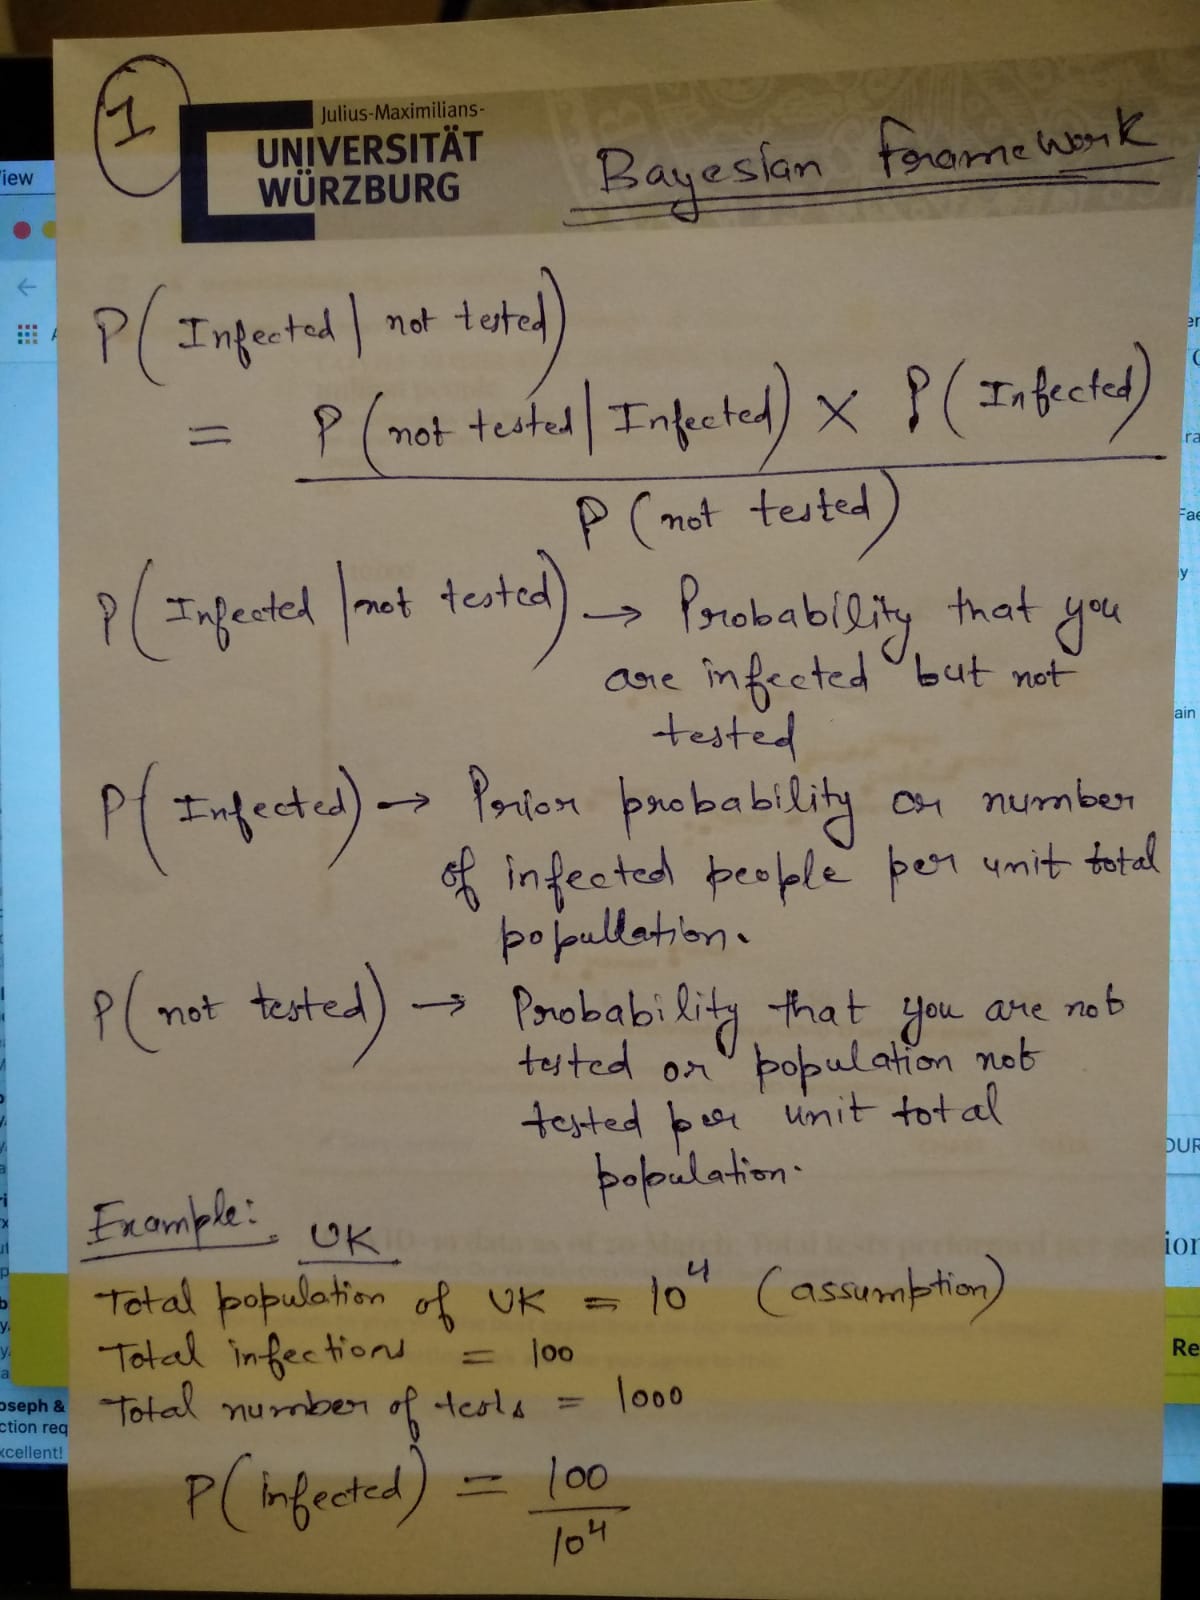 1
Julius-Maximilians-
UNIVERSITÄT
WÜRZBURG
Bayesian Framework
P(Infected | not tested)
= P(not tested | Infected) × P(Infected)
P(not tested)
P(Infected | not tested) → Probability that you
are infected but not
tested
P(Infected) → Prior probability or number
of infected people per unit total
populλation.
P(not tested) → Probability that you are not
tested or population not
tested per unit total
population.
Example: UK
Total population of UK = 10⁴ (assumption)
Total infections = 100
Total number of tests = 1000
P(infected) = 100
10⁴
iew
oseph &
ction req
xcellent!
ain
OUR
ion
Re